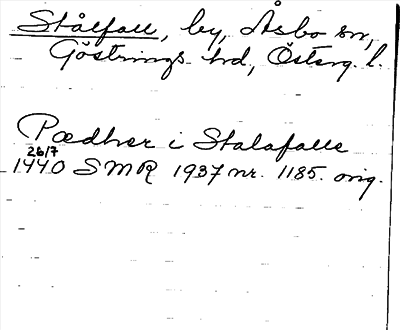 Stålfall, by, Åsbo sn,
Göstrings hd, Österg. l.
Pædher i Stalafalle
26/7
1440 SMR 1937 nr. 1185. orig.